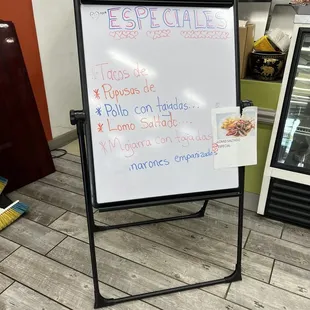 ESPECIALES
Tacos de
* Pupusas de
* Pollo con tajadas...
* Lomo Saltado...
* Mojarra con tajadas